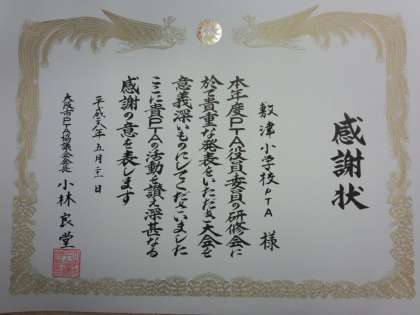 感謝状
敷津小学校PTA 様
本年度PTA役員委員の研修会に
於て貴重な発表をいただき大会を
意義深いものにしてくださいました
ここに貴PTAの活動を讃え深甚なる
感謝の意を表します
平成二八年五月二一日
大阪市PTA協議会会長 小林良堂